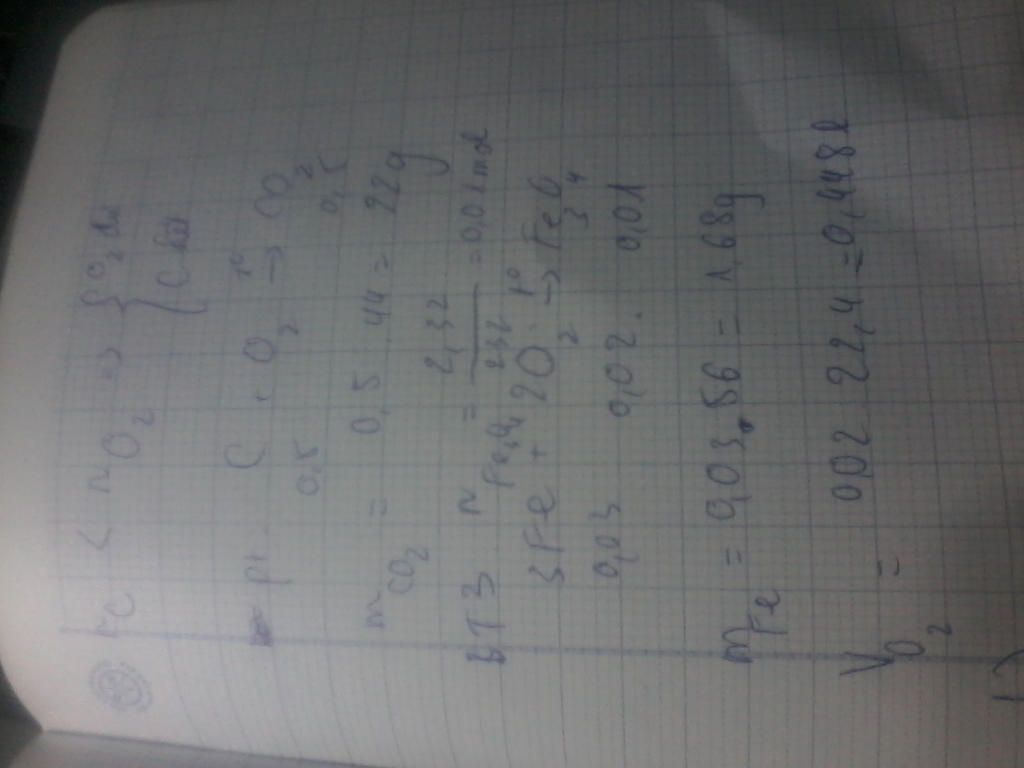 nC < nO2 => { O2 dư
{ C hết
pt C + O2 t° → CO2
0,5 0,5
mCO2 = 0,5 . 44 = 22g
BT3 nFe3O4 = 2,32 / 232 = 0,01 mol
3Fe + 2O2 t° → Fe3O4
0,03 0,02 0,01
mFe = 0,03 . 56 = 1,68g
VO2 = 0,02 22,4 = 0,448 l